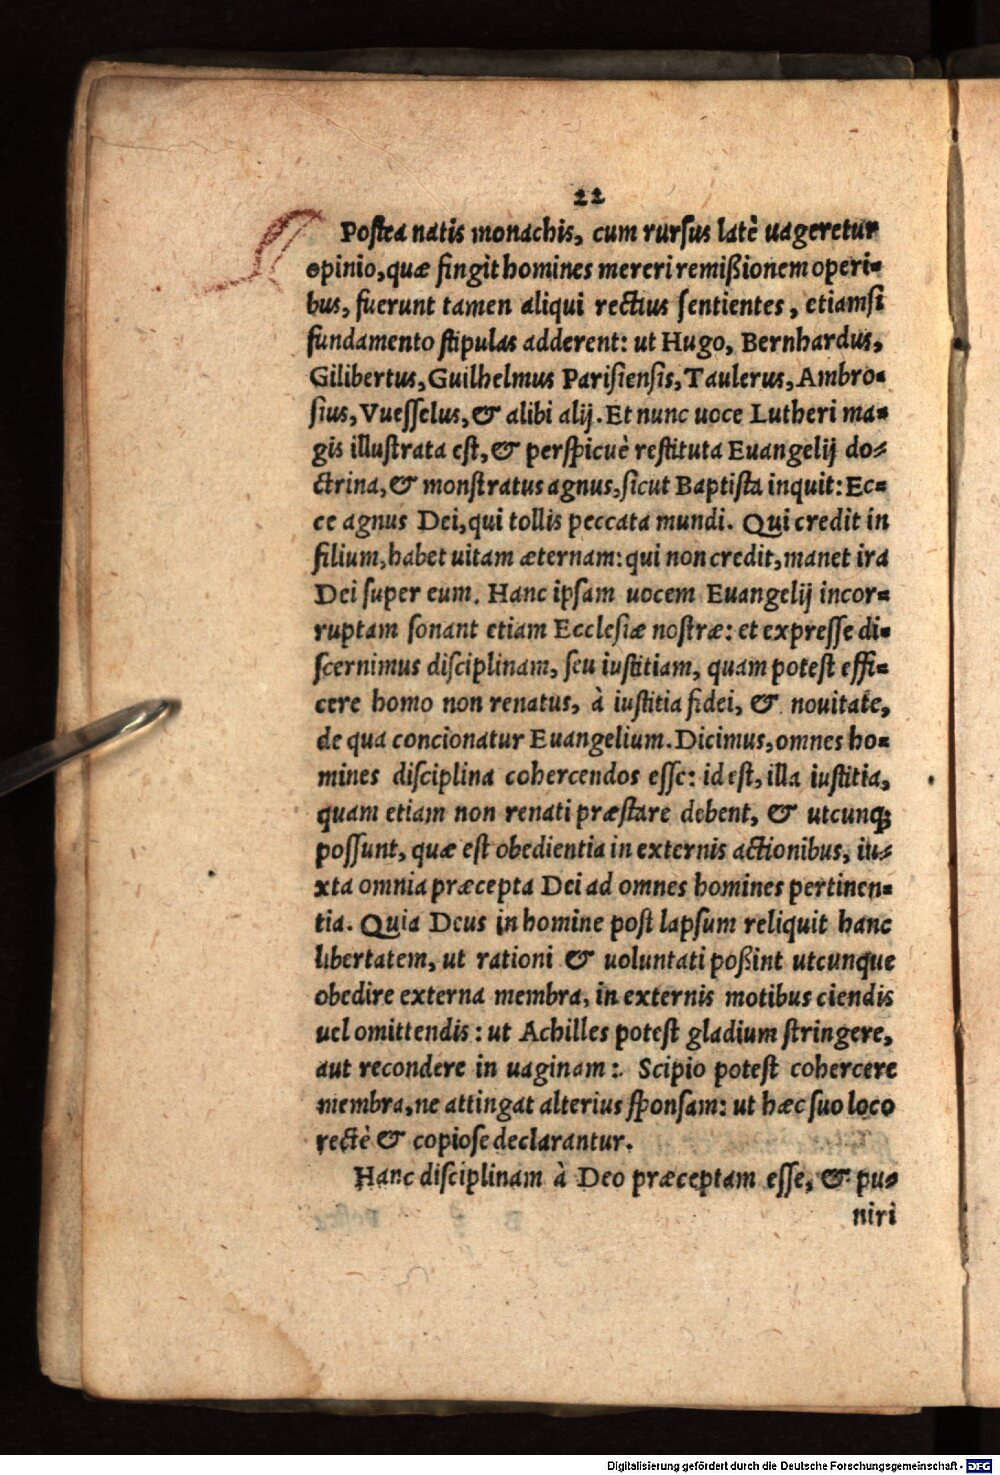 22
Postea natis monachis, cum rursus latè uageretur
opinio, quæ fingit homines mereri remißionem operi-
bus, fuerunt tamen aliqui rectius sentientes, etiamsi
fundamento stipulas adderent: ut Hugo, Bernhardus,
Gilibertus, Guilhelmus Parisiensis, Taulerus, Ambro-
sius, Vuesselus, & alibi alij. Et nunc uoce Lutheri ma-
gis illustrata est, & perspicuè restituta Euangelij do-
ctrina, & monstratus agnus, sicut Baptista inquit: Ec-
ce agnus Dei, qui tollis peccata mundi. Qui credit in
filium, habet uitam æternam: qui non credit, manet ira
Dei super eum. Hanc ipsam uocem Euangelij incor-
ruptam sonant etiam Ecclesiæ nostræ: et expresse di-
scernimus disciplinam, seu iustitiam, quam potest effi-
cere homo non renatus, à iustitia fidei, & nouitate,
de qua concionatur Euangelium. Dicimus, omnes ho-
mines disciplina cohercendos esse: id est, illa iustitia,
quam etiam non renati præstare debent, & utcunq;
possunt, quæ est obedientia in externis actionibus, iu-
xta omnia præcepta Dei ad omnes homines pertinen-
tia. Quia Deus in homine post lapsum reliquit hanc
libertatem, ut rationi & uoluntati poßint utcunque
obedire externa membra, in externis motibus ciendis
uel omittendis: ut Achilles potest gladium stringere,
aut recondere in uaginam: Scipio potest cohercere
membra, ne attingat alterius sponsam: ut hæc suo loco
rectè & copiose declarantur.
Hanc disciplinam à Deo præceptam esse, & pu-
niri
Digitalisierung gefördert durch die Deutsche Forschungsgemeinschaft - DFG